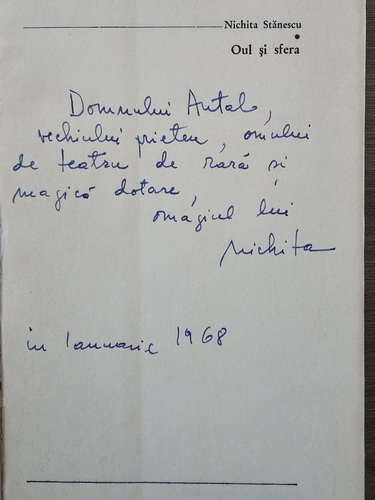 Nichita Stănescu
Oul și sfera
Domnului Antal,
vechiului prieten, omului
de teatru de rară și
magică dotare,
omagiul lui
Nichita
în Ianuarie 1968